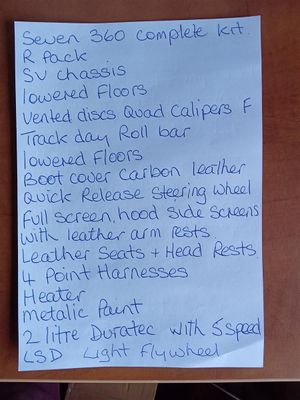 Seven 360 complete kit.
R Pack
SV chassis
lowered Floors
Vented discs Quad Calipers F
Track day Roll bar
lowered Floors
Boot cover Carbon leather
Quick Release Steering wheel
Full screen, hood side screens
with leather arm rests
Leather Seats + Head Rests
4 Point Harnesses
Heater
metalic Paint
2 litre Duratec with 5 speed
LSD Light Flywheel